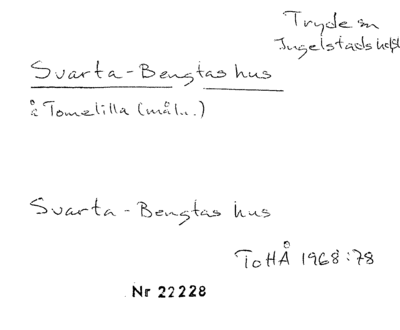 Tryde sn
Ingelstads hd
Svarta-Bengtas hus
å Tomelilla (mål..)
Svarta-Bengtas hus
ToHÅ 1968:78
Nr 22228